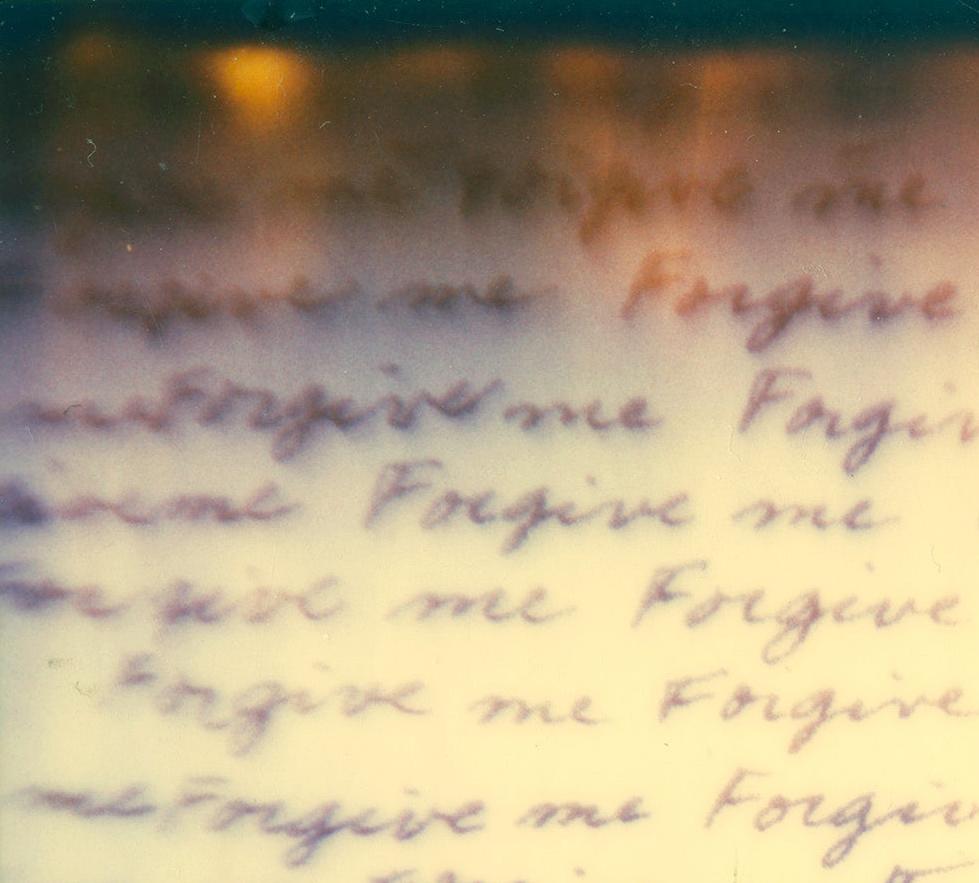 me Forgive me
me Forgive
Forgive me Forgiv
me Forgive me
ive me Forgive
Forgive me Forgive
me Forgive me Forgiv